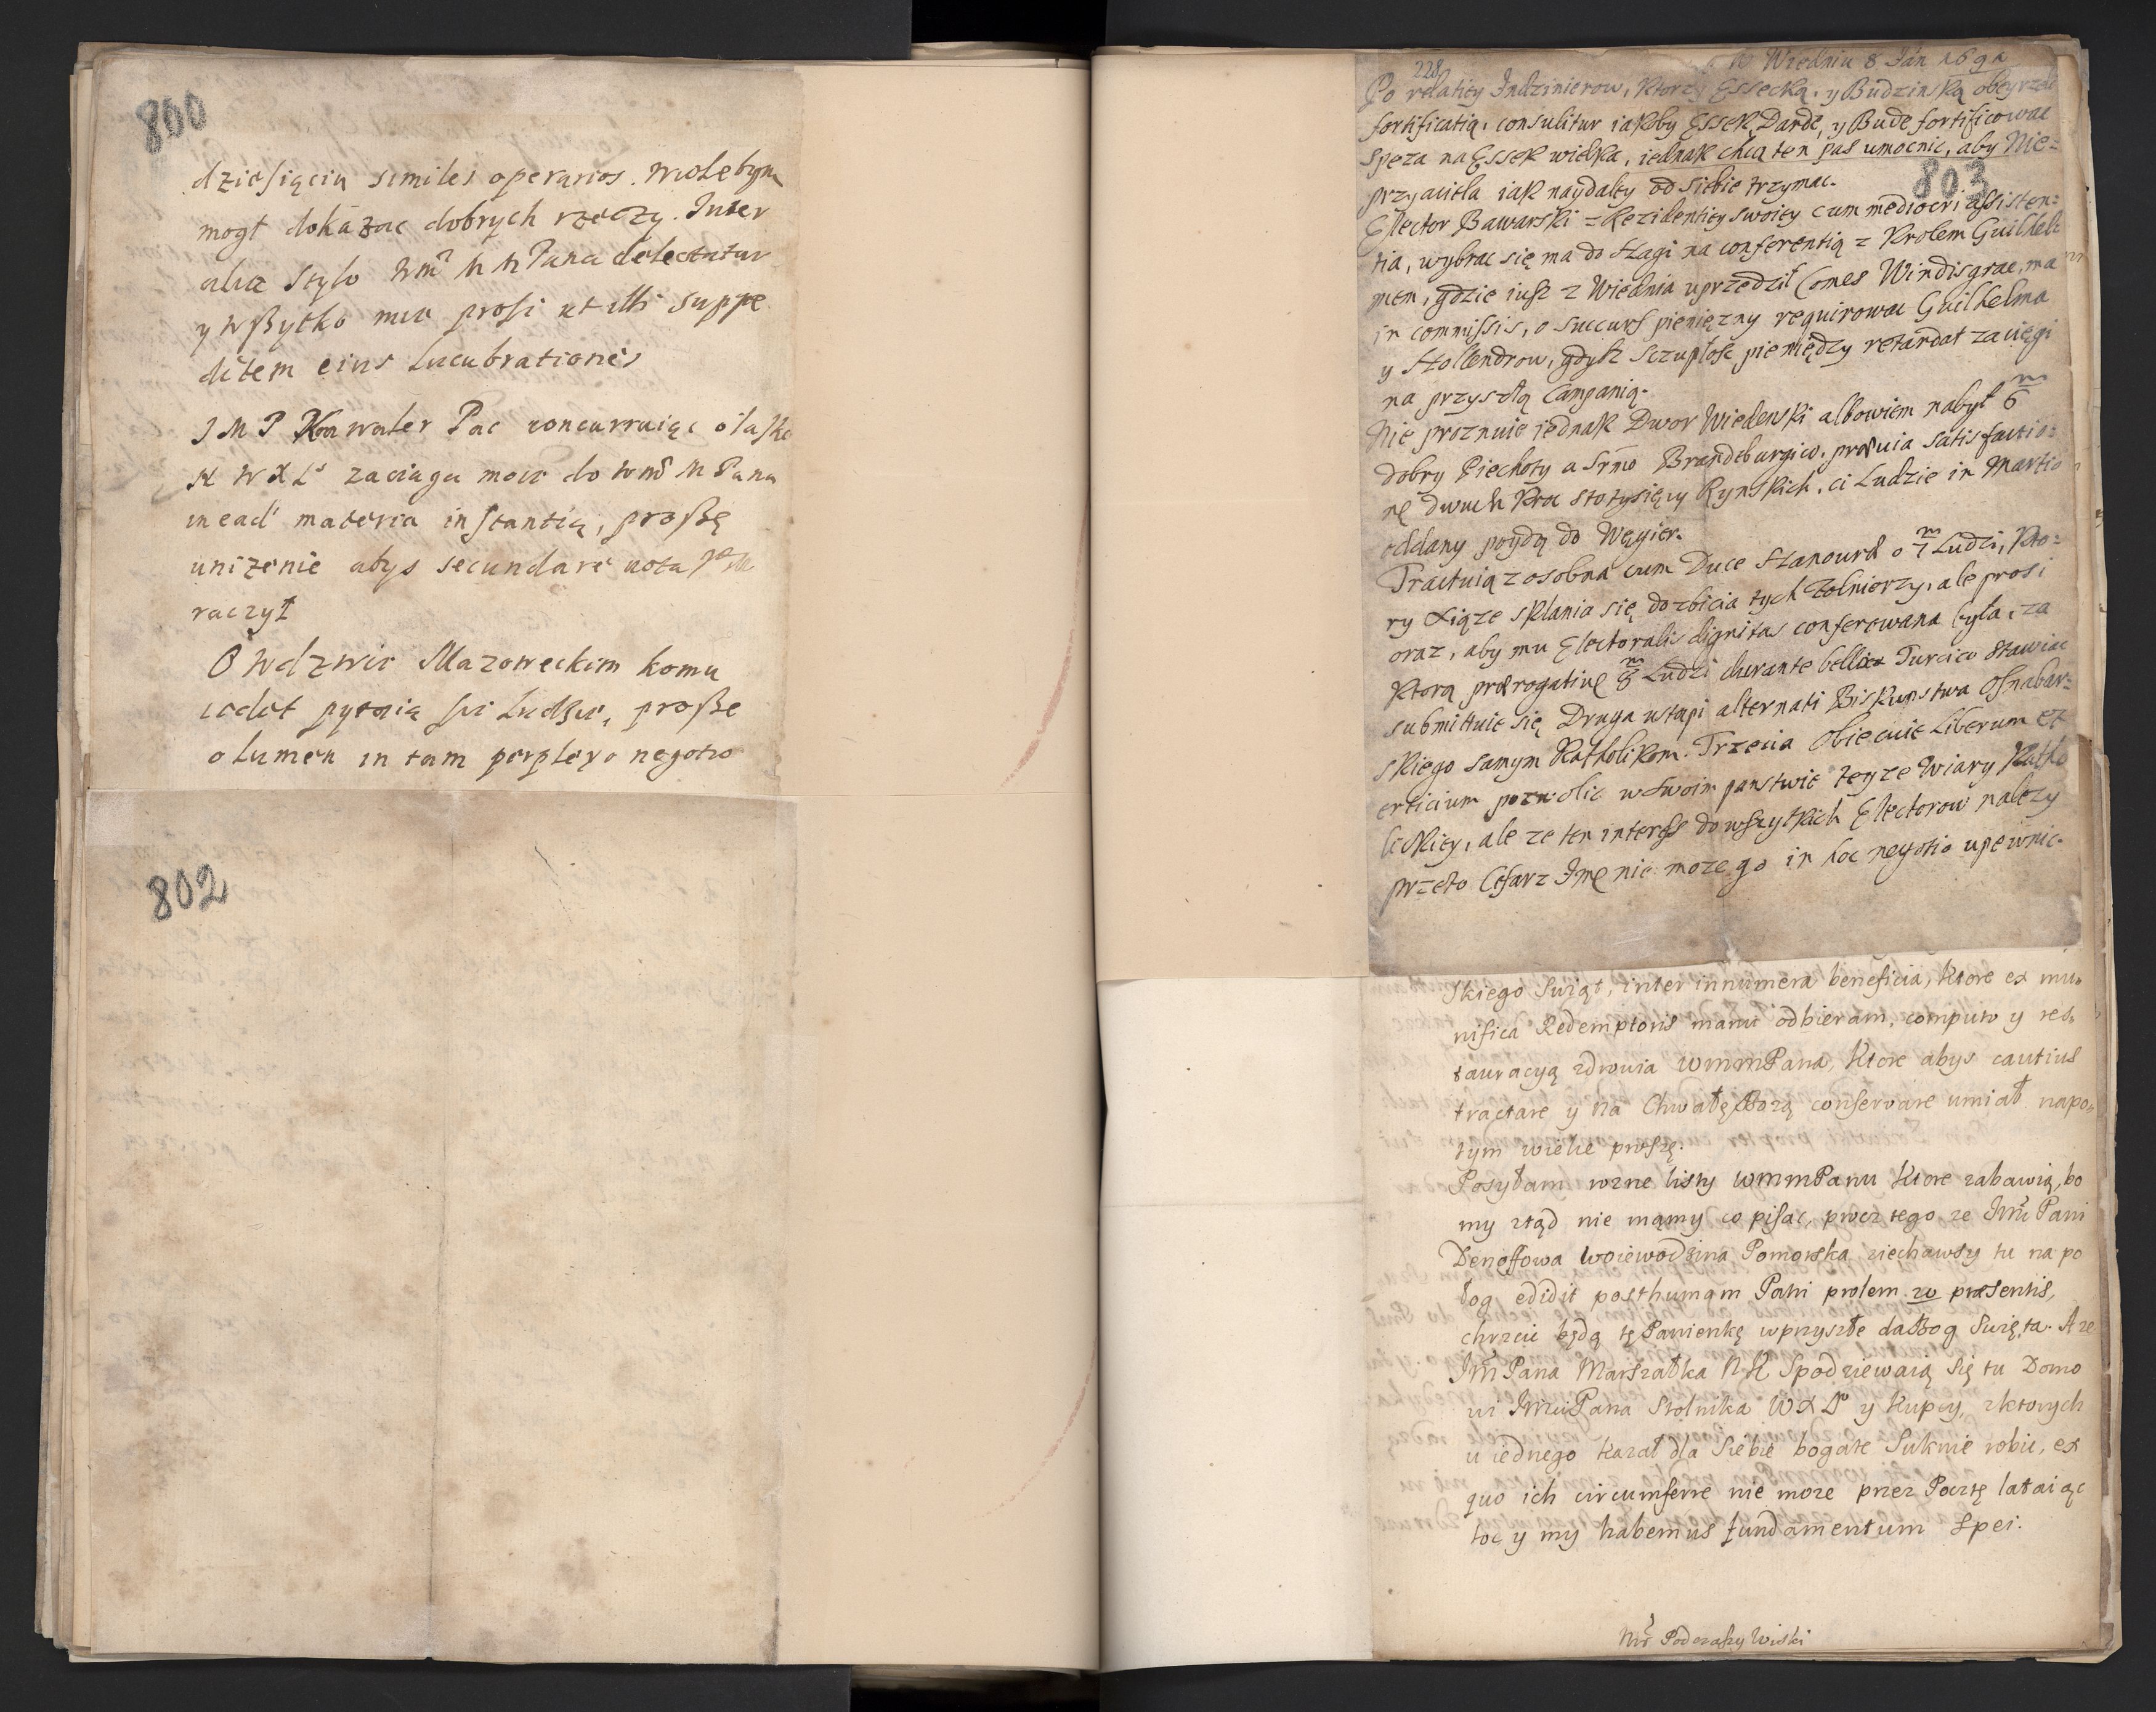 800
dziesięciu similes operarios. Molebym
mogł dokazac dobrych rzeczy. Inter
alia stylo Wmci Pana delectatur
y wszytko mie prosi ut illi suppe
ditem eius Lucubrationes
J M P Kawaler Pac concurruiąc o laskę
W X L zaciąga moię do Wmci M Pana
in ea materia instantią, proszę
unizenie abys secundare vota
raczył
O Wdztwie Mazoweckim komu
cedet pytaią się Ludzie, proszę
o lumen in tam perplexo negotio
802
228
W Wiedniu 8 Jan 1692
Po relatiey Indzinierow, ktorzy Essecką, y Budzinską obeyrzeli
fortificatią, consulitur iakoby Essek, Darde, y Bude fortificowac
speza na Essek wielka, iednak chcą ten pas umocnic, aby Nie=
przyaciela iak naydaley od siebie trzymac.
803
Elector Bawarski z Rezidentiey swoiey cum mediocri assisten=
tia, wybrac się ma do Hagi na conferentią z Krolem Guilhel=
mem, gdzie iusz z Wiednia uprzedził Comes Windisgrac, ma
in commissis, o succurs pieniężny requirowac Guilhelma
y Hollendrow, gdysz sczupłosc pieniędzy retardat zaciągi
na przyszłą Campanią.
Nie proznuie iednak Dwor Wiedenski albowiem nabył 6 m
dobry Piechoty a Srmo Brandeburgico, prævia satisfactio=
ne dwuch kroc stotysięcy Rynskich, ci Ludzie in Martio
oddany poydą do Węgier.
Tractuią z osobna cum Duce Hanourd o 7 m Ludzi, kto=
ry Xiąze sklania się do zbicia tych Zolnierzy, ale prosi
oraz, aby mu Electoralis dignitas conferowana była, za
ktorą prærogativę 8 m Ludzi durante bello Turcico stawiac
submittuie się Druga ustąpi alternati Biskupstwa Osnabur=
skiego samym Katholikom. Trzecia Obiecuie Liberum ex
ercicium pozwolic w swoim panstwie teyze Wiary Katho
lickiey, ale ze ten interess do wszytkich Electorow nalezy
przeto Cesarz Jmę nie moze go in hoc negotio upewnic.
skiego Swiąt, inter innumera beneficia, ktore ex mu=
nifica Redemptoris manu odbieram, computo y res=
tauracyą zdrowia WMMPana, ktore abys cautius
tractare y na Chwałę Bozą conservare umiał napo=
tym wielce proszę.
Posyłam rozne listy WMMPanu ktore zabawią, bo
my ztąd nie mąmy co pisac, procz tego ze Jmci Pani
Denoffowa Woiewodzina Pomorska ziechawszy tu na po
log edidit posthumam Patri prolem 20 præsentis,
chrzcic będą tę Panienkę w przyszłe da Bog Swięta. A ze
Jmci Pana Marszałka N K Spodziewaią się tu Domo
wi Jmci Pana Stolnika W X L y Kupcy, z ktorych
u iednego kazał dla siebie bogate suknie robic, ex
quo ich circumferre nie moze przez Pocztę lataiąc
toc y my habemus fundamentum spei.
Podczaszy Wiski